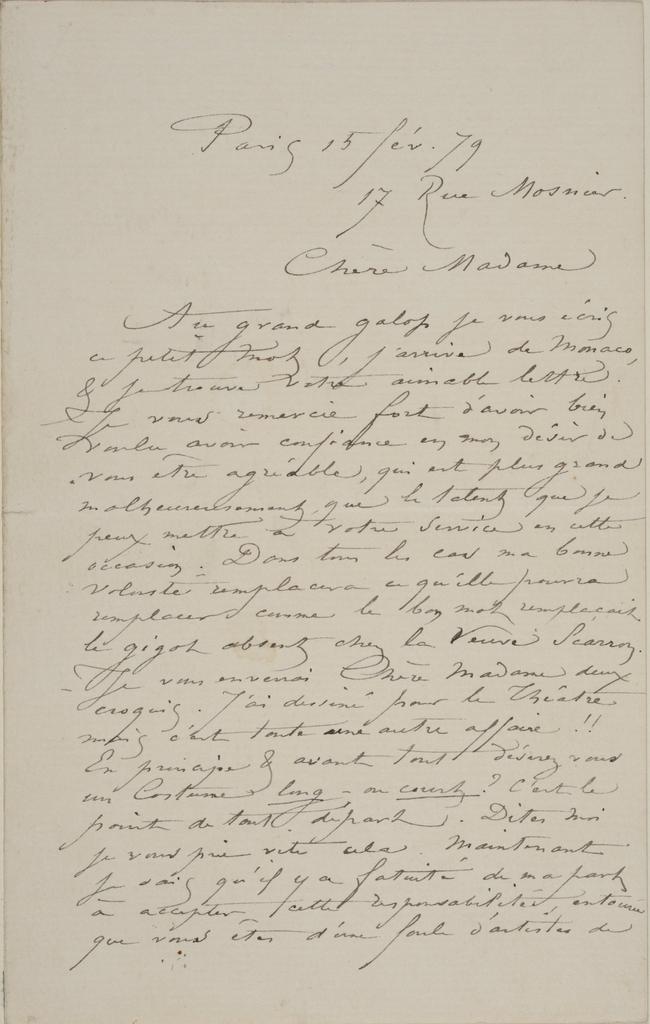 Paris 15 fév. 79
17 Rue Mosnier.
Chère Madame
Au grand galop je vous écris
ce petit mot, j'arrive de Monaco,
& je trouve votre aimable lettre.
Je vous remercie fort d'avoir bien
voulu avoir confiance en mon désir de
vous être agréable, qui est plus grand
malheureusement que le talent que je
peux mettre à votre service en cette
occasion. Dans tous les cas ma bonne
volonté remplacera ce qu'elle pourra
remplacer comme le bon mot remplaçait
le gigot absent chez la Veuve Scarron.
Je vous enverrai Chère Madame deux
croquis. J'ai dessiné pour le Théâtre
mais c'est toute une autre affaire !!
En principe & avant tout désirez vous
un Costume long – ou court ? C'est le
point de tout départ. Dites moi
je vous prie vite cela. Maintenant
je sais qu'il y a fatuité de ma part
à accepter cette responsabilité, entourée
que vous êtes d'une foule d'artistes de